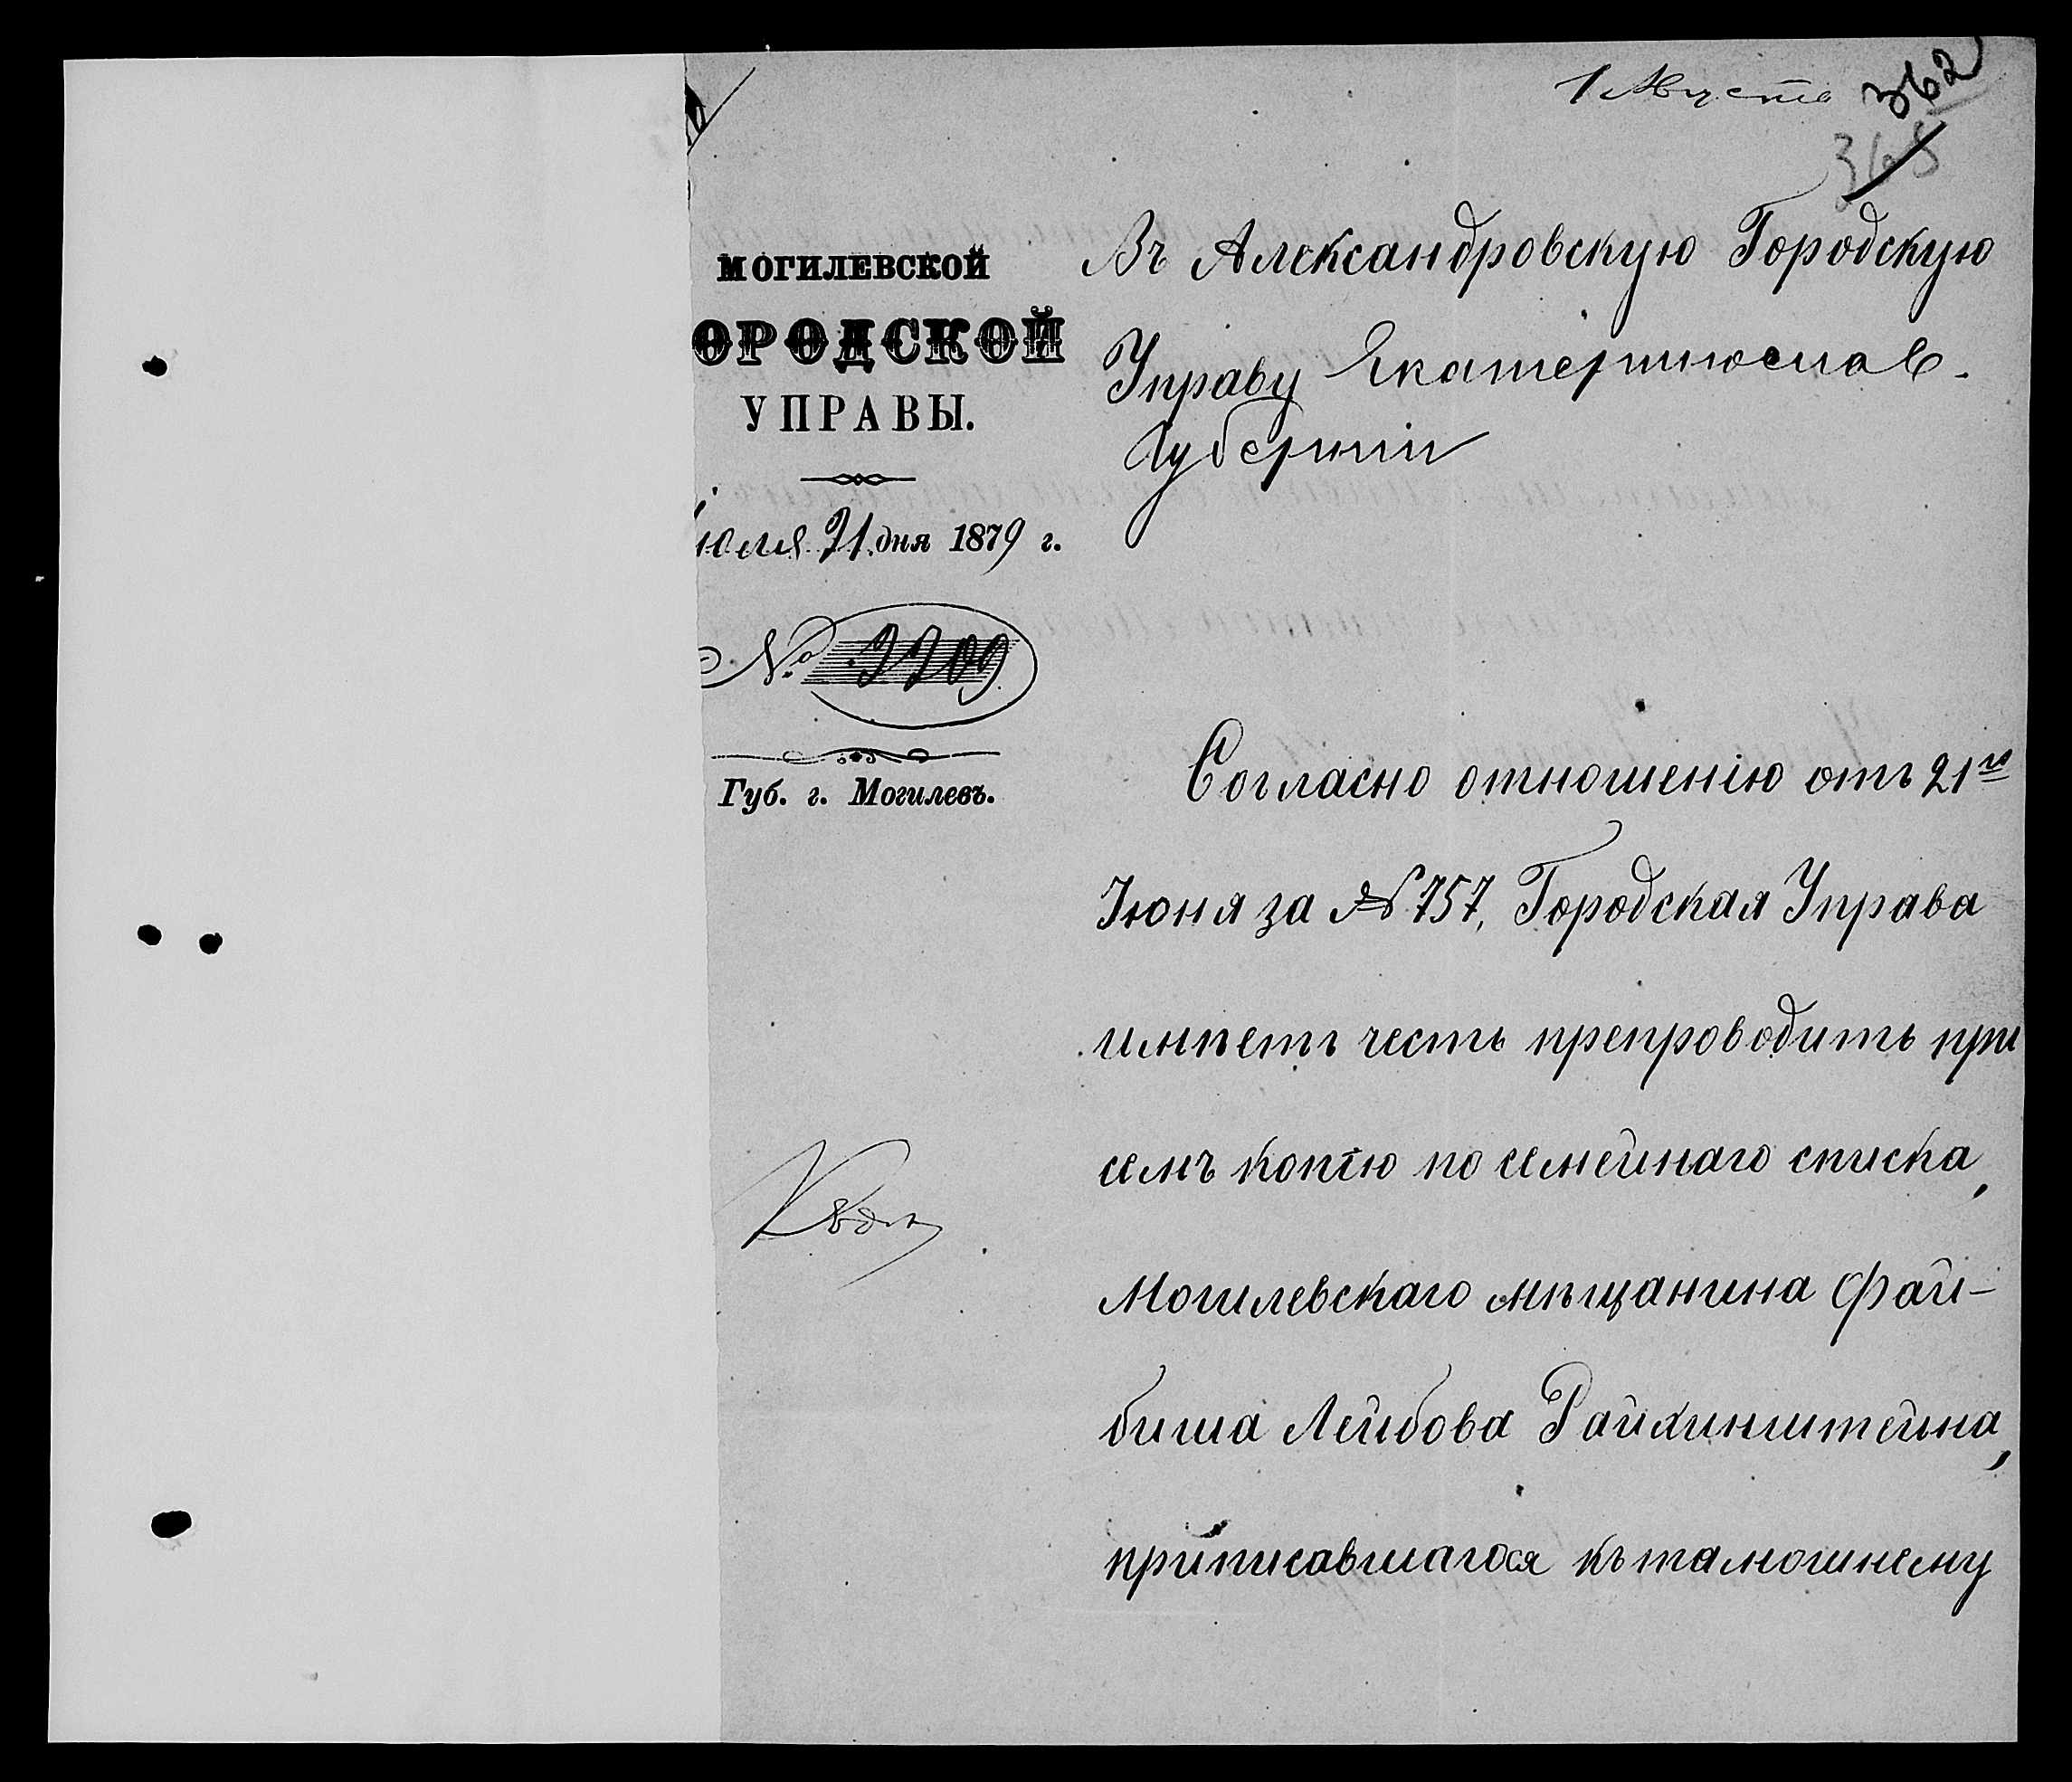 1 Августа 362
365
МОГИЛЕВСКОЙ
ОРОДСКОЙ
УПРАВЫ.
юля 21 дня 1879 г.
№ 2209
Губ. г. Могилевъ.
Въ Александровскую Городскую
Управу Екатеринослав.
Губерніи
Согласно отношенію отъ 21го
Іюня за № 757, Городская Управа
имѣетъ честь препроводить при
семъ копію по семейнаго списка,
Могилевскаго мѣщанина Фай-
биша Лейбова Райхинштейна,
приписавшагося къ тамошнему